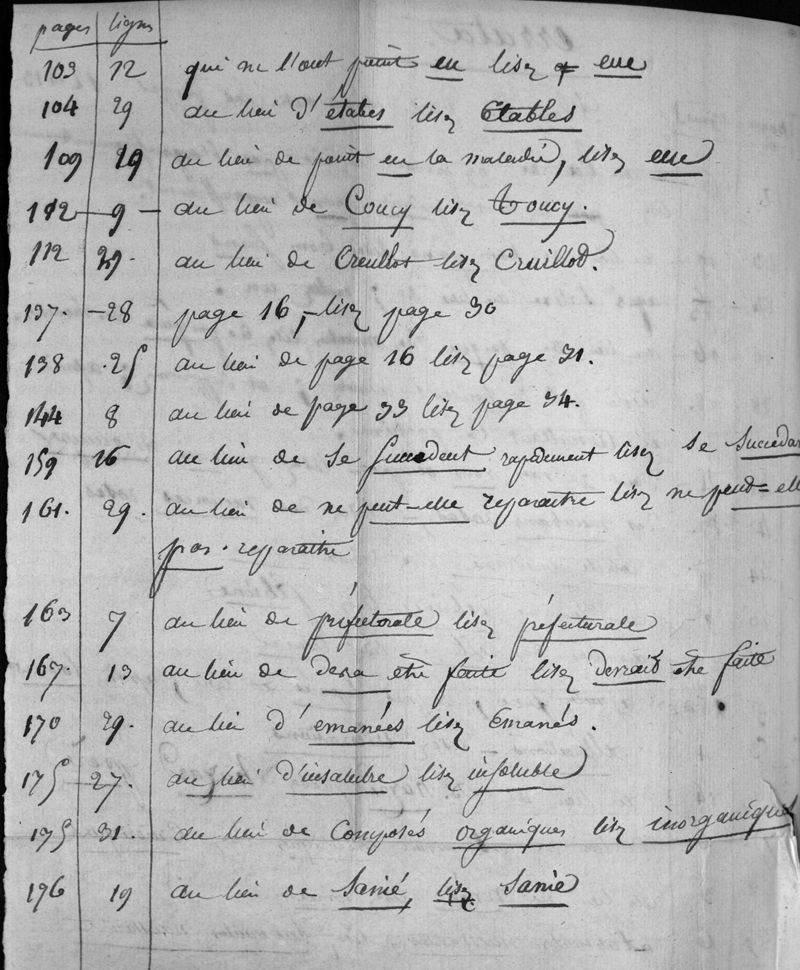 pages lignes
103 12 qui ne l'ont point eu lisez eue
104 29 au lieu d'étabes lisez Etables
109 19 au lieu de point eu la maladie, lisez eue
112 - 9 - au lieu de Coucy lisez Toucy.
112 29. au lieu de Creullot lisez Cruillod.
137. - 28 page 16, - lisez page 30
138 . 25 au lieu de page 16 lisez page 31.
144 8 au lieu de page 33 lisez page 34.
159 16 au lieu de se succedent rapidement lisez se succedar
161. 29. au lieu de ne peut-elle reparaitre lisez ne peut=elle
pas. reparaitre
163 7 au lieu de préfectorale lisez préfecturale
167. 13 au lieu de devra etre faite lisez devrait etre faite
170 29. au lieu d'émanées lisez Emanés.
175 27. au lieu d'insalubre lisez insoluble
175 31. au lieu de Composés organiques lisez inorganiques
196 19 au lieu de Sanié, lisez Sanie